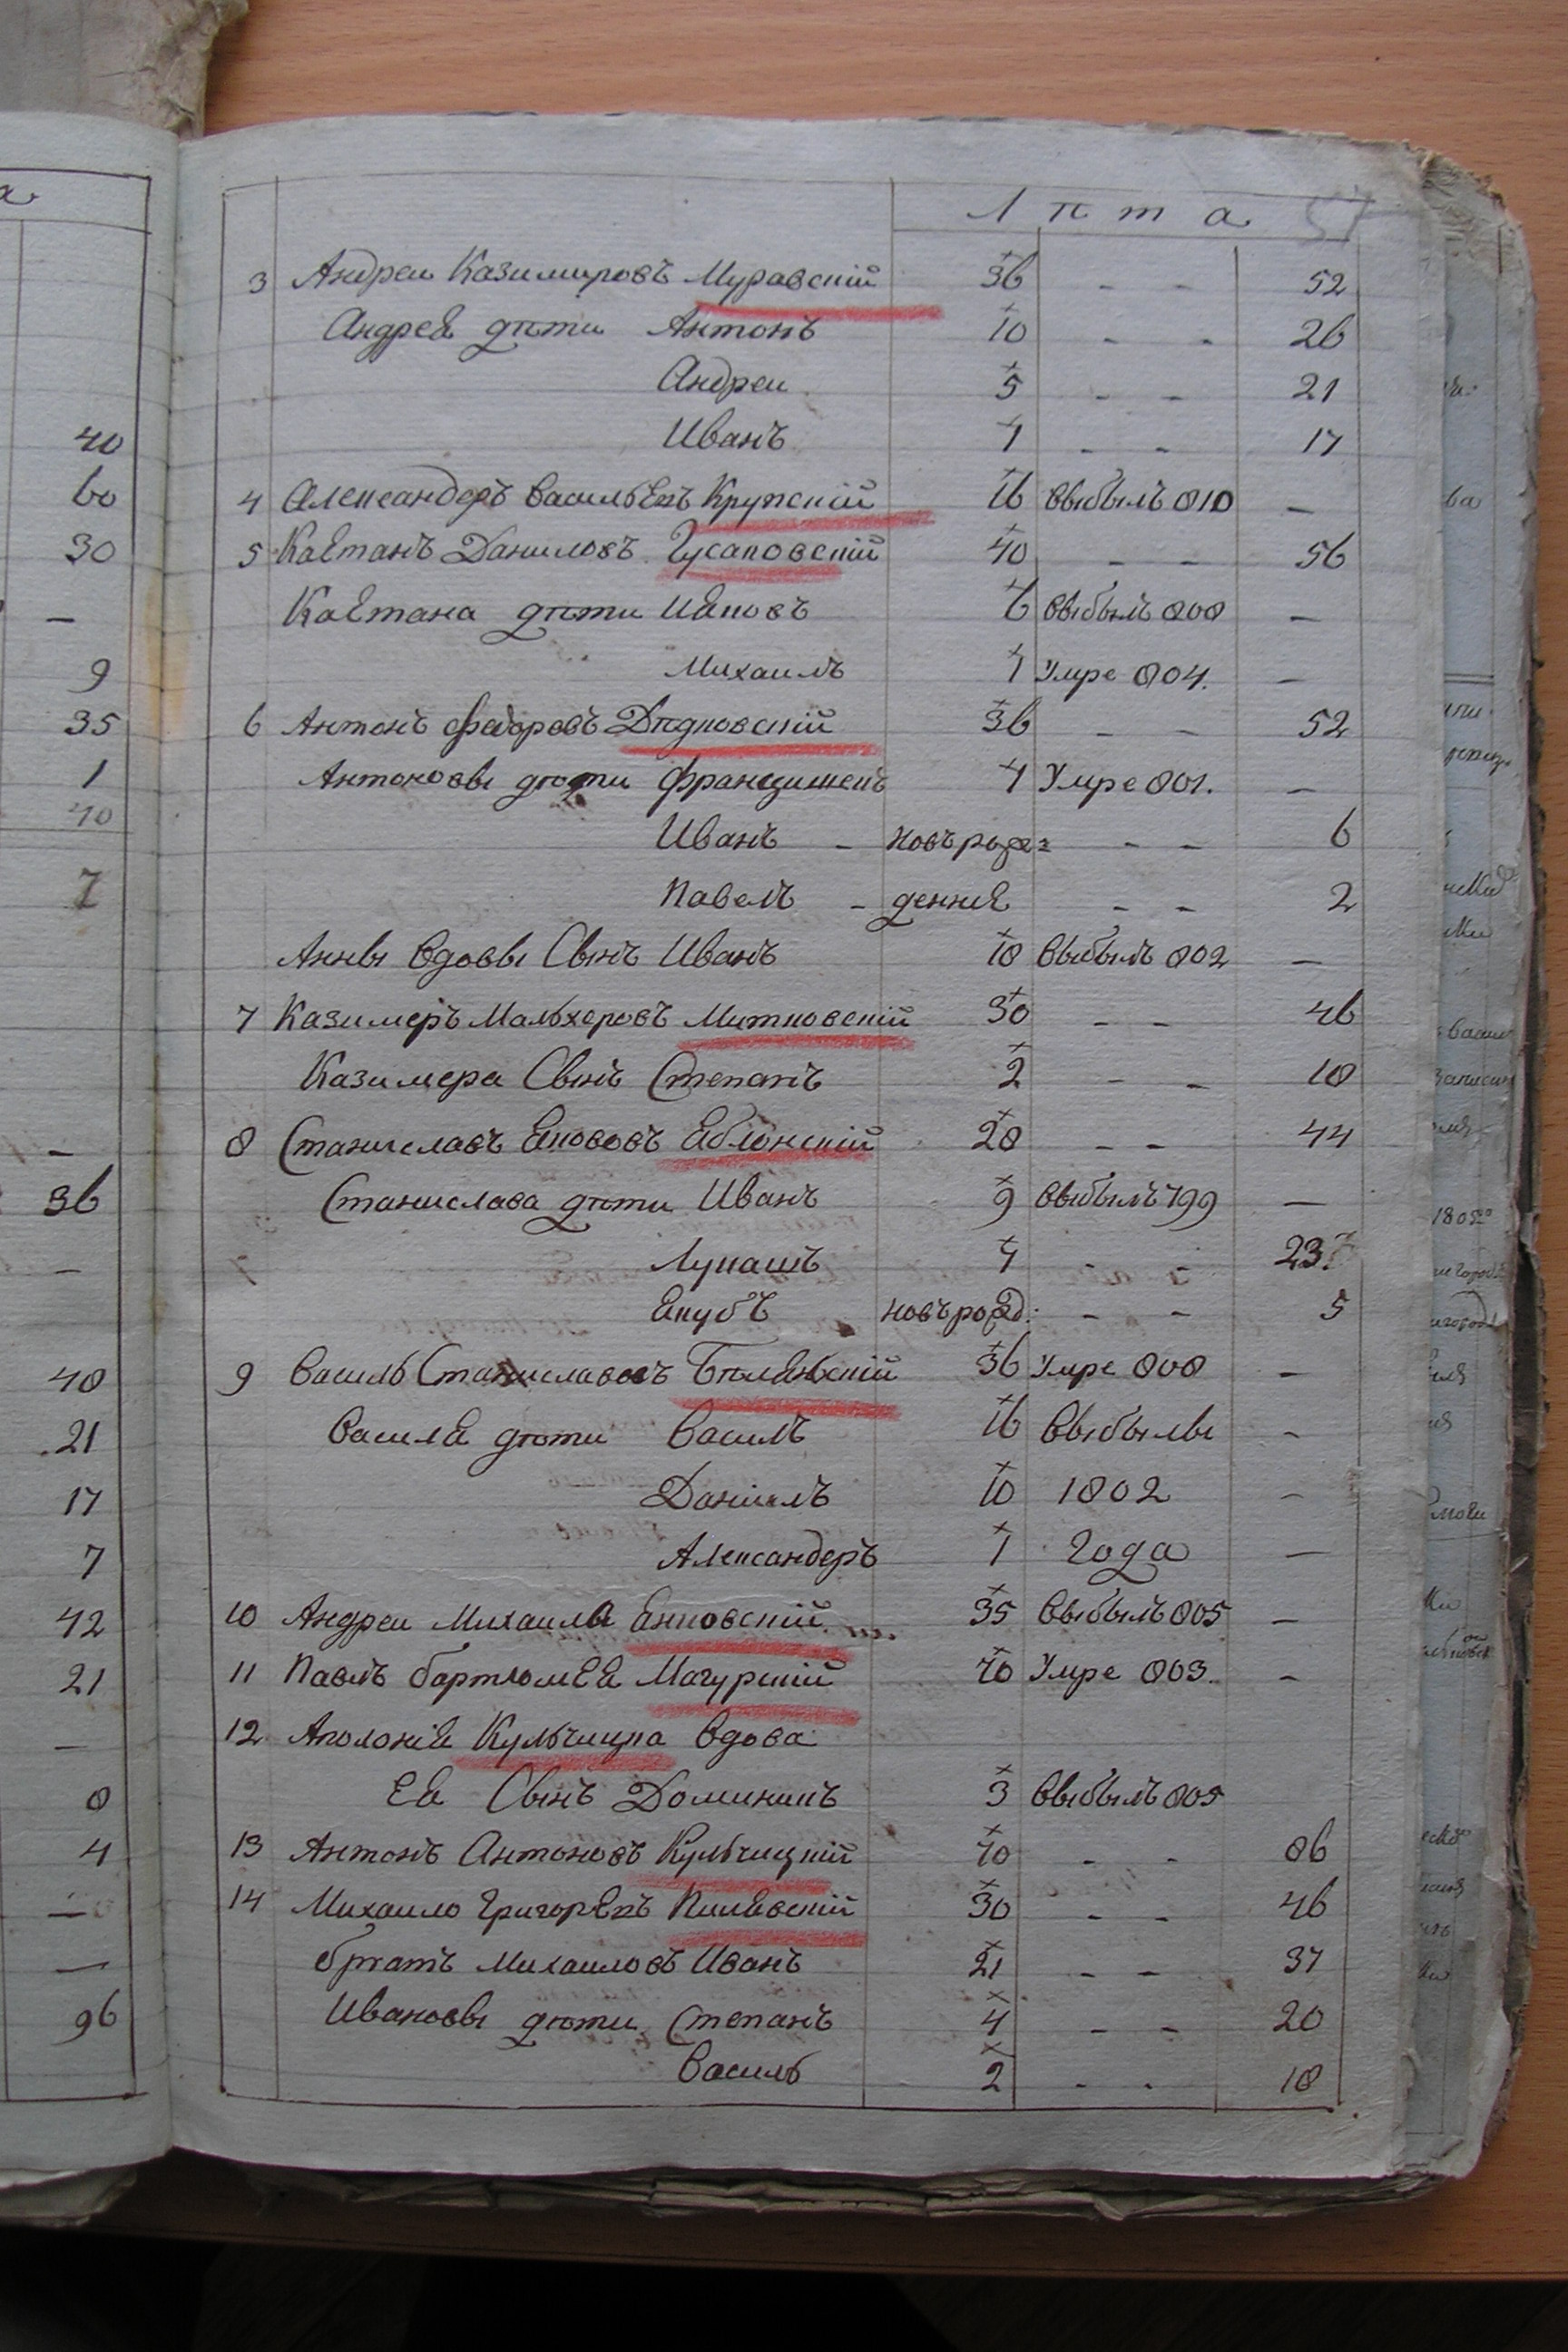 Лѣта
3 Андреи Казимировъ Муравскій 36 - - 52
Андрея дѣти Антонъ 10 - - 26
Андреи 5 - - 21
Иванъ 1 - - 17
4 Александеръ Васильевъ Крупскій 16 выбылъ 810 —
5 Каетанъ Даниловъ Гусаковскій 40 - - 56
Каетана дѣти Яковъ 6 выбылъ 808 —
Михаилъ Умре 804. —
6 Антонъ Федоровъ Дѣдковскій 36 - - 52
Антоновы дѣти Францишекъ Умре 801. —
Иванъ - новърож= - - 6
Павелъ - денніе - - 2
Анны вдовы Сынъ Иванъ 18 выбылъ 802 —
7 Казимеръ Мальхеровъ Митковскій 30 - - 46
Казимера Сынъ Степанъ 2 - - 18
8 Станиславъ Якововъ Яблонскій 28 - - 44
Станислава дѣти Иванъ 9 выбылъ 799 —
Лукашъ 7 - - 23
Якубъ новърожд: - - 5
9 Василь Станиславовъ Бѣлявскій 36 Умре 808 —
Василя дѣти Василь 16 выбылы -
Даніилъ 10 1802 -
Александеръ 1 Года —
10 Андреи Михаила Янковскій 35 выбылъ 805 —
11 Павлъ бартломея Мачурскій 70 Умре 803. -
12 Аполонія Кульчицка вдова
Ея Сынъ Доминикъ 3 выбылъ 805
13 Антонъ Антоновъ Кульчицкій 70 - - 86
14 Михаило Григорьевъ Килевскій 30 - - 46
братъ Михаиловъ Иванъ 21 - - 37
Ивановы дѣти Степанъ 4 - - 20
Василь 2 - - 18
40
60
30
—
9
35
1
40
7
—
36
—
48
21
17
7
42
21
—
8
4
—
—
96